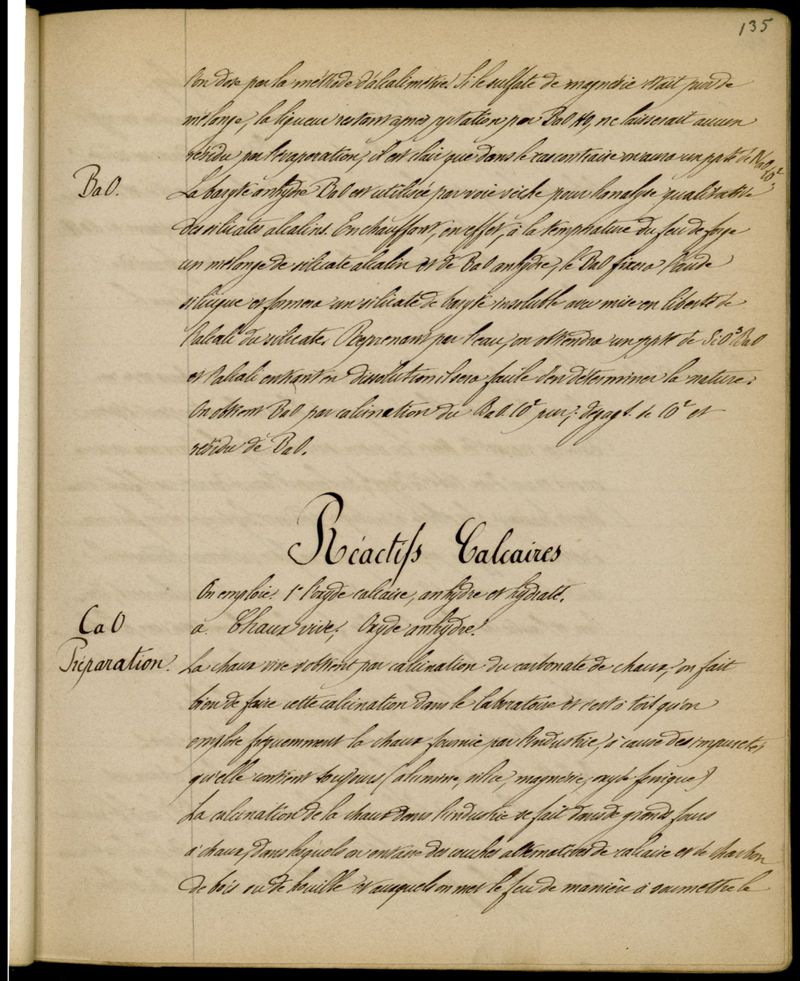 135
l'on dose par la méthode d'alcalimétrie. Si le sulfate de magnésie était pur de
mélange, la liqueur restant après pptation par BaO HO, ne laisserait aucun
résidu par l'évaporation; il est clair que dans le cas contraire on aura un ppté de BaO, CO².
BaO.
La baryte anhydre BaO est utilisée par voie sèche pour l'analyse qualitative
des silicates alcalins. En chauffant, en effet, à la température du feu de forge
un mélange de silicate alcalin et de BaO anhydre, le BaO fixera l'acide
silicique et formera un silicate de baryte insoluble avec mise en liberté de
l'alcali du silicate. Reprenant par l'eau, on obtiendra un ppté de SiO³BaO
et l'alcali entrant en dissolution il sera facile d'en déterminer la nature.
On obtient BaO par calcination du BaO CO² pur; dégagt. de CO² et
résidu de BaO.
Réactifs Calcaires
On emploie: 1º l'oxyde calcaire, anhydre et hydraté.
CaO
a. Chaux vive, Oxyde anhydre.
Préparation.
La chaux vive s'obtient par calcination du carbonate de chaux, on fait
bien de faire cette calcination dans le laboratoire et c'est à tort qu'on
emploie fréquemment la chaux fournie par l'industrie, à cause des impuretés
qu'elle contient toujours (alumine, silice, magnésie, oxyde ferrique.)
La calcination de la chaux dans l'industrie se fait dans de grands fours
à chaux, dans lesquels on entasse des couches alternatives de calcaire et de charbon
de bois ou de houille et auxquels on met le feu de manière à soumettre le